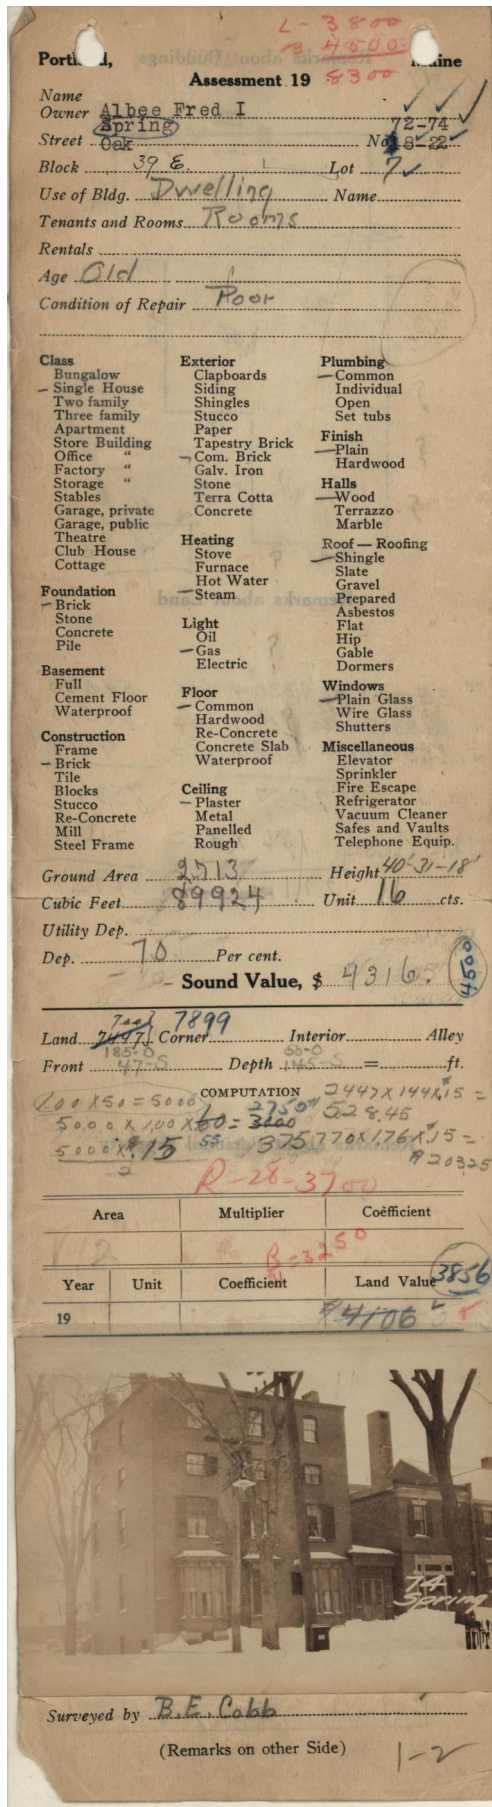 L - 3800
B 4500
8300
Portland, Maine
Assessment 19
Name
Owner Albee Fred I
Spring 72-74
Street Oak No 18-22
Block 39 E. Lot 7
Use of Bldg. Dwelling Name
Tenants and Rooms Rooms
Rentals
Age Old
Condition of Repair Poor
Class
Bungalow
Single House
Two family
Three family
Apartment
Store Building
Office "
Factory "
Storage "
Stables
Garage, private
Garage, public
Theatre
Club House
Cottage
Foundation
Brick
Stone
Concrete
Pile
Basement
Full
Cement Floor
Waterproof
Construction
Frame
Brick
Tile
Blocks
Stucco
Re-Concrete
Mill
Steel Frame
Exterior
Clapboards
Siding
Shingles
Stucco
Paper
Tapestry Brick
Com. Brick
Galv. Iron
Stone
Terra Cotta
Concrete
Heating
Stove
Furnace
Hot Water
Steam
Light
Oil
Gas
Electric
Floor
Common
Hardwood
Re-Concrete
Concrete Slab
Waterproof
Ceiling
Plaster
Metal
Panelled
Rough
Plumbing
Common
Individual
Open
Set tubs
Finish
Plain
Hardwood
Halls
Wood
Terrazzo
Marble
Roof — Roofing
Shingle
Slate
Gravel
Prepared
Asbestos
Flat
Hip
Gable
Dormers
Windows
Plain Glass
Wire Glass
Shutters
Miscellaneous
Elevator
Sprinkler
Fire Escape
Refrigerator
Vacuum Cleaner
Safes and Vaults
Telephone Equip.
Ground Area 2713 Height 40'-31-18'
Cubic Feet 89924 Unit 16 cts.
Utility Dep.
Dep. 70 Per cent.
Sound Value, $ 4316. 4500
7899
Land 7447 Corner Interior Alley
185-O
Front 47-S Depth 145-S = ft.
COMPUTATION
100 x 50 = 5000 2750 2447 x 144 x .15 =
5000 x 1,00 x 60 = 3000 528.45
5000 x .15 55 375 770 x 1.76 x .15 =
2 $20325
R-28-3700
Area Multiplier Coëfficient
B = 3250
Year Unit Coefficient Land Value 3856
19 $4106
74
Spring
Surveyed by B. E. Cobb
(Remarks on other Side)
1-2